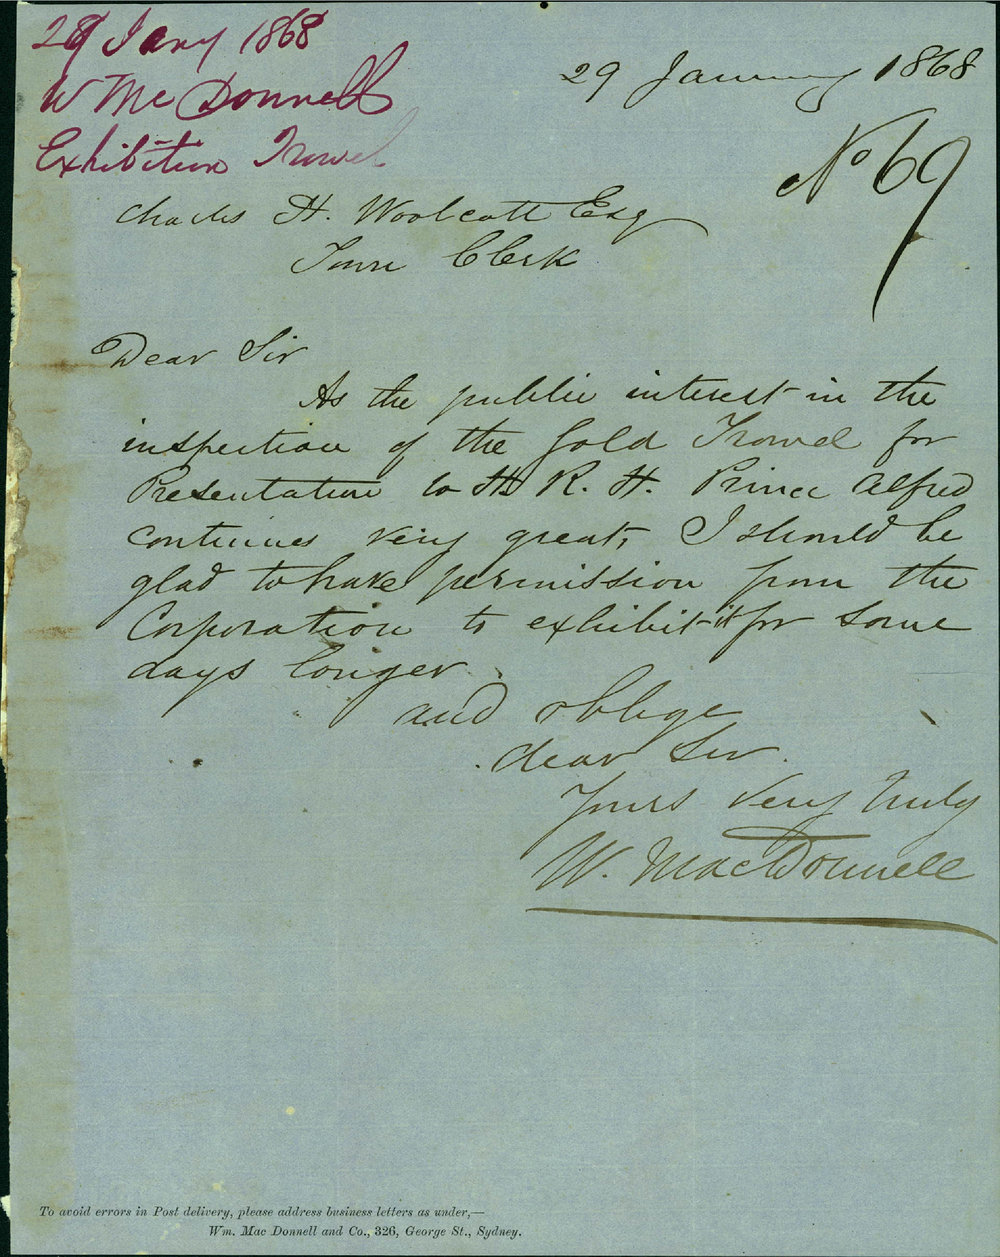 29 Jany 1868
W McDonnell
Exhibition Trowel
29 January 1868
No 69
Charles H. Woolcott Esq
Town Clerk
Dear Sir
As the public interest in the
inspection of the Gold Trowel for
Presentation to H. R. H. Prince Alfred
continues very great, I should be
glad to have permission from the
Corporation to exhibit it for some
days longer.
and oblige
dear Sir.
Yours very truly
W. MacDonnell
To avoid errors in Post delivery, please address business letters as under,—
Wm. Mac Donnell and Co., 326, George St., Sydney.